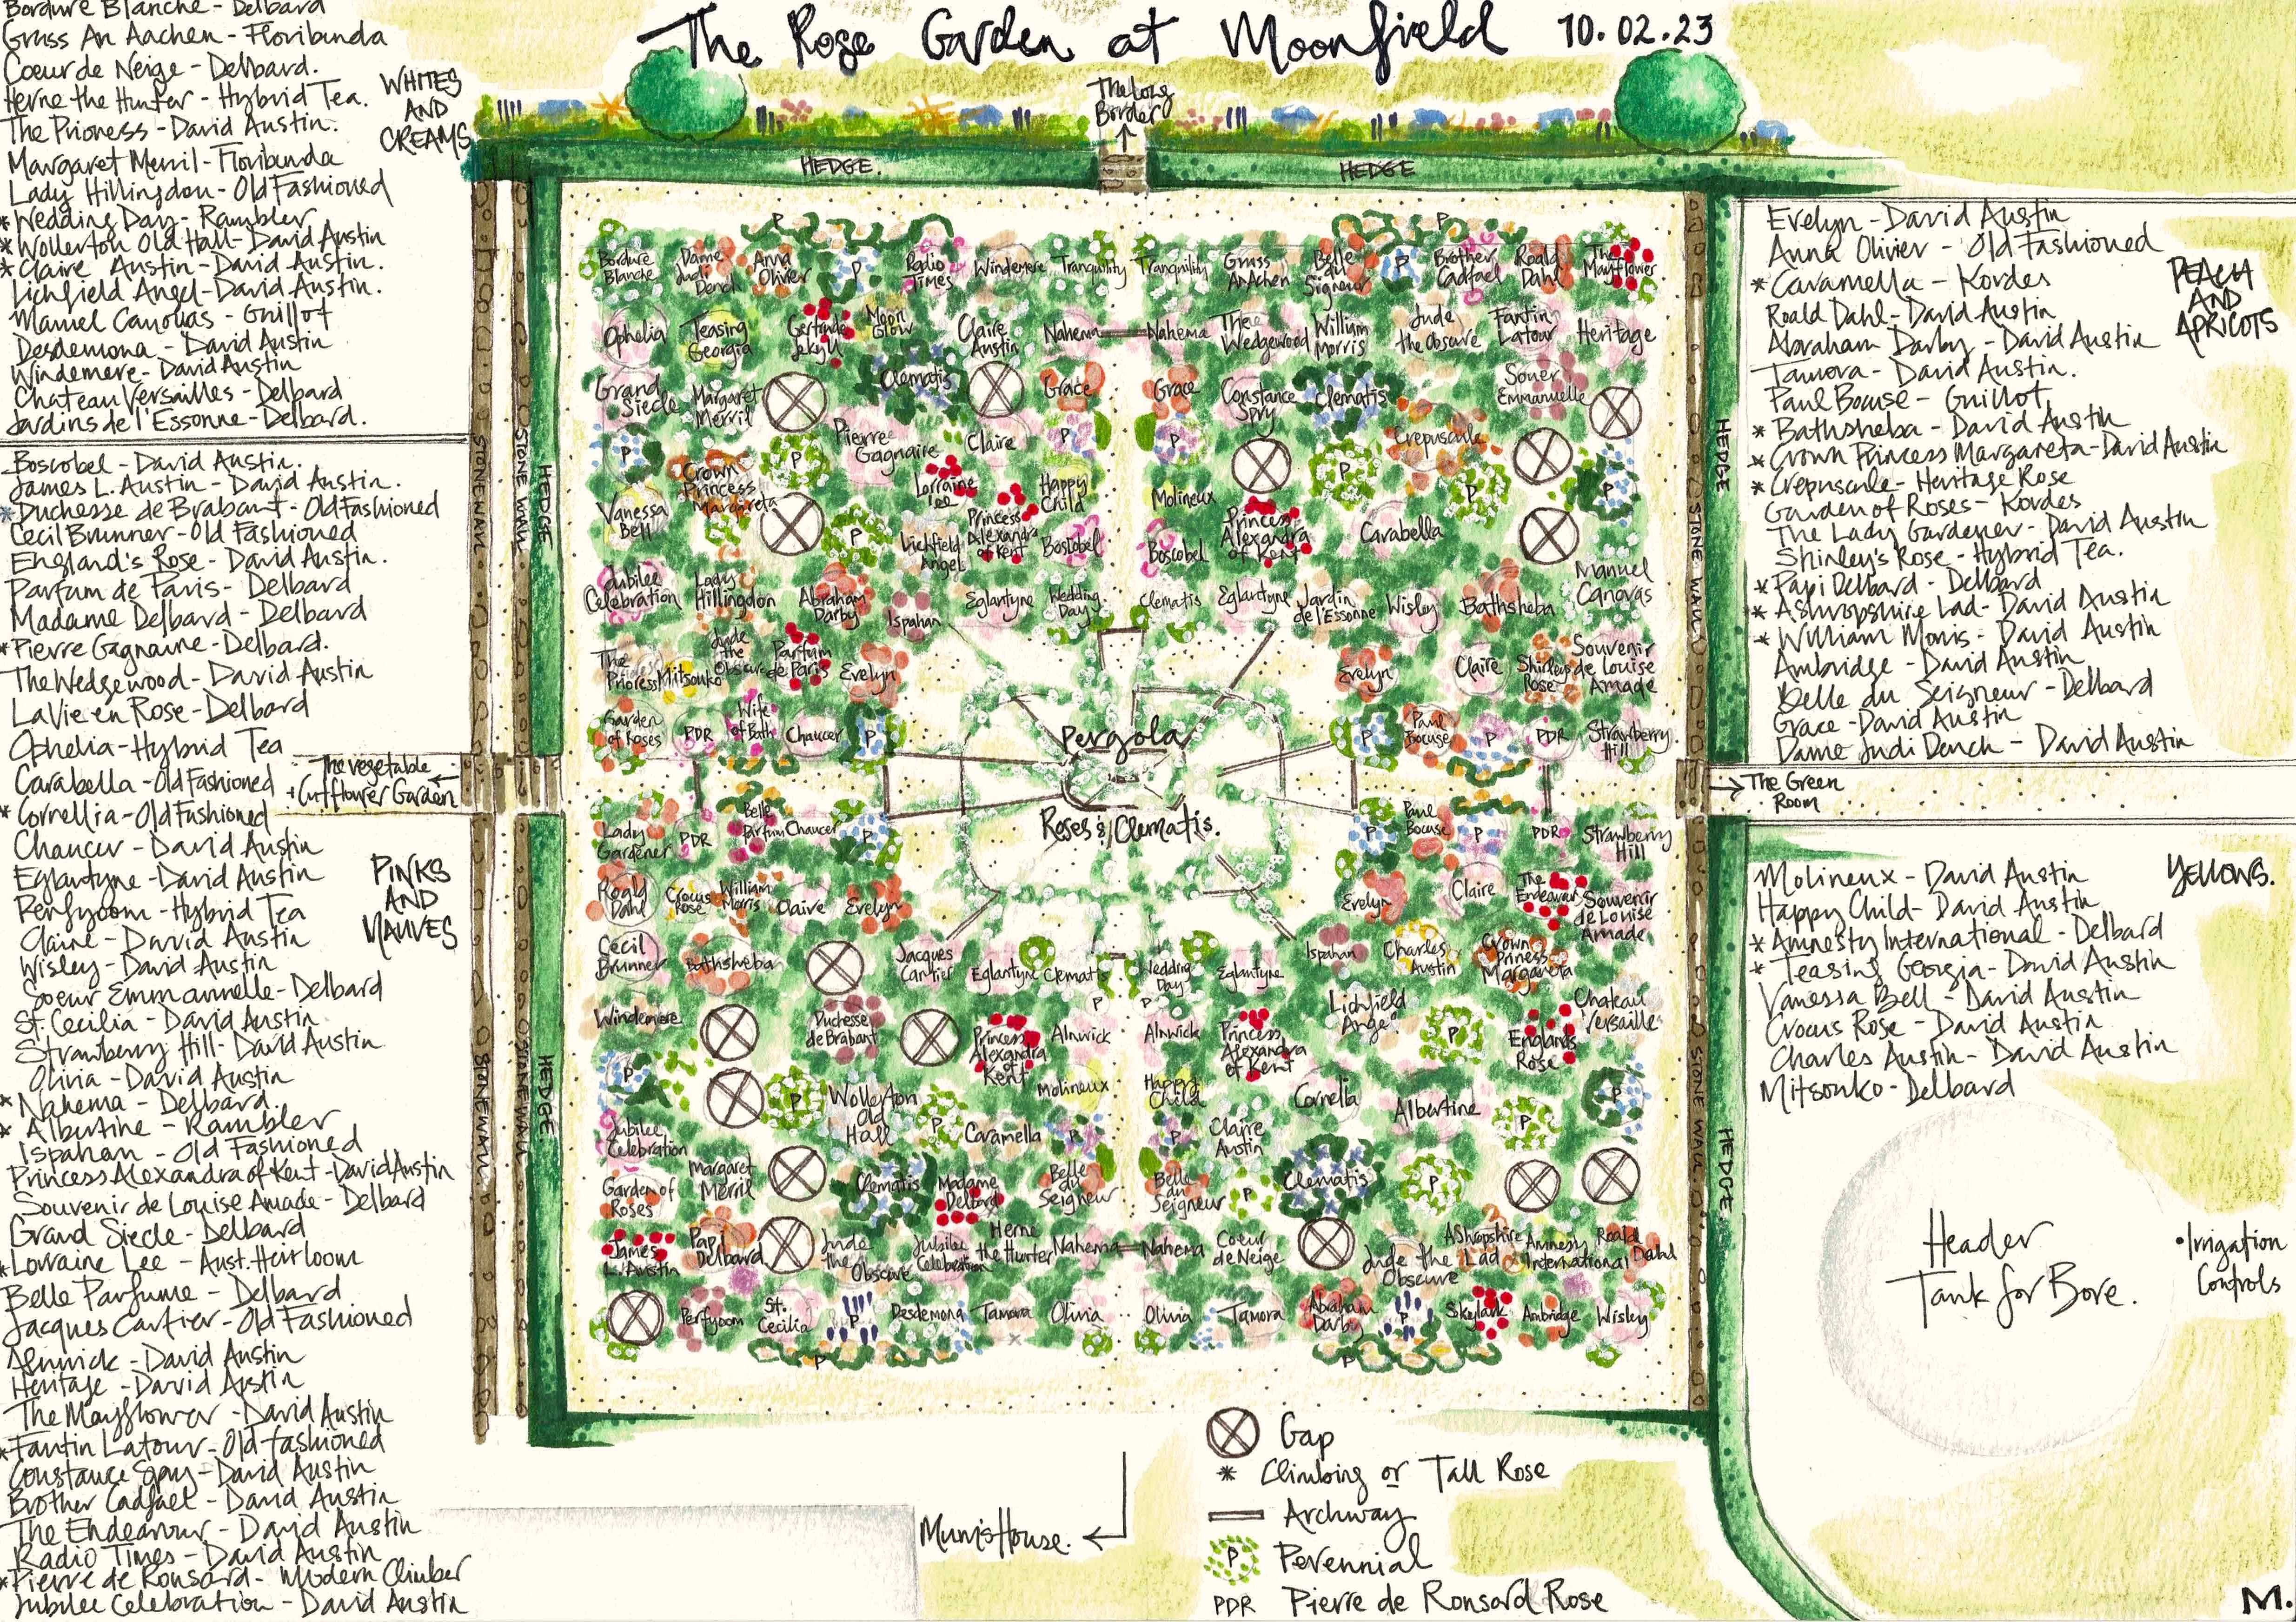 The Rose Garden at Moonfield 10.02.23
Bordure Blanche - Delbard
Gruss An Aachen - Floribunda
Coeur de Neige - Delbard.
Herne the Hunter - Hybrid Tea.
The Prioress - David Austin.
Margaret Merril - Floribunda
Lady Hillingdon - Old Fashioned
* Wedding Day - Rambler
* Wollerton Old Hall - David Austin
* Claire Austin - David Austin.
Lichfield Angel - David Austin.
Manuel Canovas - Guillot
Desdemona - David Austin
Windemere - David Austin
Chateau Versailles - Delbard
Jardins de l'Essonne - Delbard.
WHITES
AND
CREAMS
Boscobel - David Austin.
James L. Austin - David Austin.
* Duchesse de Brabant - Old Fashioned
Cecil Brunner - Old Fashioned
England's Rose - David Austin.
Parfum de Paris - Delbard
Madame Delbard - Delbard
* Pierre Gagnaire - Delbard.
The Wedgewood - David Austin
La Vie en Rose - Delbard
Ophelia - Hybrid Tea
Carabella - Old Fashioned
* Cornellia - Old Fashioned
Chaucer - David Austin
Eglantyne - David Austin
Perfyoom - Hybrid Tea
Claire - David Austin
Wisley - David Austin
Soeur Emmannelle - Delbard
St. Cecilia - David Austin
Strawberry Hill - David Austin
Olivia - David Austin
* Nahema - Delbard.
* Albertine - Rambler
Ispahan - Old Fashioned
Princess Alexandra of Kent - David Austin
Souvenir de Louise Amade - Delbard
Grand Siecle - Delbard
* Lorraine Lee - Aust. Heirloom
Belle Parfume - Delbard
Jacques Cartier - Old Fashioned
Alnwick - David Austin
Heritage - David Austin
The Mayflower - David Austin
* Fantin Latour - Old fashioned
Constance Spry - David Austin
Brother Cadfael - David Austin
The Endeavour - David Austin
Radio Times - David Austin
* Pierre de Ronsard - Modern Climber
Jubilee Celebration - David Austin
PINKS
AND
MAUVES
The vegetable
+ Cutflower Garden
The Long
Border
HEDGE.
HEDGE
STONE WALL
STONE WALL
HEDGE
HEDGE
STONE WALL
STONE WALL
STONE WALL
HEDGE.
STONE WALL
HEDGE
P
P
Bordure
Blanche
Dame
Judi
Dench
Anna
Olivier
P
Radio
Times
Windemere
Tranquility
Tranquility
Gruss
An Achen
Belle
du
Signeur
P
Brother
Cadfael
Roald
Dahl
The
Mayflower
Ophelia
Teasing
Georgia
Gertrude
Jekyll
Moon
Glow
Claire
Austin
Nahema
Nahema
The
Wedgewood
William
Morris
Jude
the Obsure
Fantin
Latour
Heritage
Grand
Siecle
Margaret
Merril
Clematis
Grace
Grace
Constance
Spry
Clematis
Souer
Emmanuelle
P
Crown
Princess
Margareta
P
Pierre
Gagnaire
Claire
P
P
P
Crepuscule
P
P
Vanessa
Bell
P
Lorraine
Lee
Lichfield
Angel
Princess
Alexandra
of Kent
Happy
Child
Boscobel
Molineux
Boscobel
Princess
Alexandra
of Kent
Carabella
Jubilee
Celebration
Lady
Hillingdon
Abraham
Darby
Ispahan
Eglantyne
Wedding
Day
Clematis
Eglantyne
Jardin
de l'Essonne
Wisley
Bathsheba
Manuel
Canovas
The
Prioress
Mitsouko
Jude
the
Obscure
Parfum
de Paris
Evelyn
Evelyn
Claire
Shirleys
Rose
Souvenir
de Louise
Amade
Garden
of Roses
PDR
Wife
of Bath
Chaucer
P
Pergola
Roses & Clematis.
P
Paul
Bocuse
P
PDR
Strawberry
Hill
Lady
Gardener
PDR
Belle
Parfum
Chaucer
P
P
Paul
Bocuse
P
PDR
Strawberry
Hill
Roald
Dahl
Crocus
Rose
William
Morris
Claire
Evelyn
Evelyn
Claire
The
Endeavour
Souvenir
de Louise
Amade
Cecil
Brunner
Bathsheba
Jacques
Cartier
Eglantyne
Clematis
P
P
Wedding
Day
Eglantyne
Ispahan
Charles
Austin
Crown
Princess
Margareta
Windemere
Duchesse
de Brabant
Princess
Alexandra
of
Kent
Alnwick
Alnwick
Princess
Alexandra
of Kent
Lichfield
Angel
P
Englands
Rose
Chateau
Versaille
P
P
Wollerton
Old
Hall
P
Molineux
Happy
Child
Cornella
Albertine
P
P
Jubilee
Celebration
Caramella
P
P
Claire
Austin
Garden of
Roses
Margaret
Merril
Clematis
Madame
Delbard
Belle
du
Seigneur
Belle
du
Seigneur
P
Clematis
P
James
L. Austin
Papi
Delbard
Jude
the
Obscure
Jubilee
Celebration
Herne
the Hunter
Nahema
Nahema
Coeur
de Neige
Jude the
Obscure
A Shropshire
Lad
Amnesty
International
Roald
Dahl
Perfyoom
St.
Cecilia
P
Desdemona
Tamora
Olivia
Olivia
Tamora
Abraham
Darby
P
Skylark
Ambridge
Wisley
P
P
Evelyn - David Austin
Anna Olivier - Old Fashioned
* Caramella - Kordes
Roald Dahl - David Austin
Abraham Darby - David Austin
Tamora - David Austin.
Paul Bocuse - Guillot
* Bathsheba - David Austin
* Crown Princess Margareta - David Austin
* Crepuscule - Heritage Rose
Garden of Roses - Kordes
The Lady Gardener - David Austin
Shirley's Rose - Hybrid Tea.
* Papi Delbard - Delbard
* A Shropshire Lad - David Austin
* William Morris - David Austin
Ambridge - David Austin
Belle du Seigneur - Delbard
Grace - David Austin
Dame Judi Dench - David Austin
PEACH
AND
APRICOTS
The Green
Room
YELLOWS.
Molineux - David Austin
Happy Child - David Austin
* Amnesty International - Delbard
* Teasing Georgia - David Austin
Vanessa Bell - David Austin
Crocus Rose - David Austin
Charles Austin - David Austin
Mitsouko - Delbard
Header
Tank for Bore.
• Irrigation
Controls
Mum's House.
Gap
* Climbing or Tall Rose
Archway
P Perennial
PDR Pierre de Ronsard Rose
M.